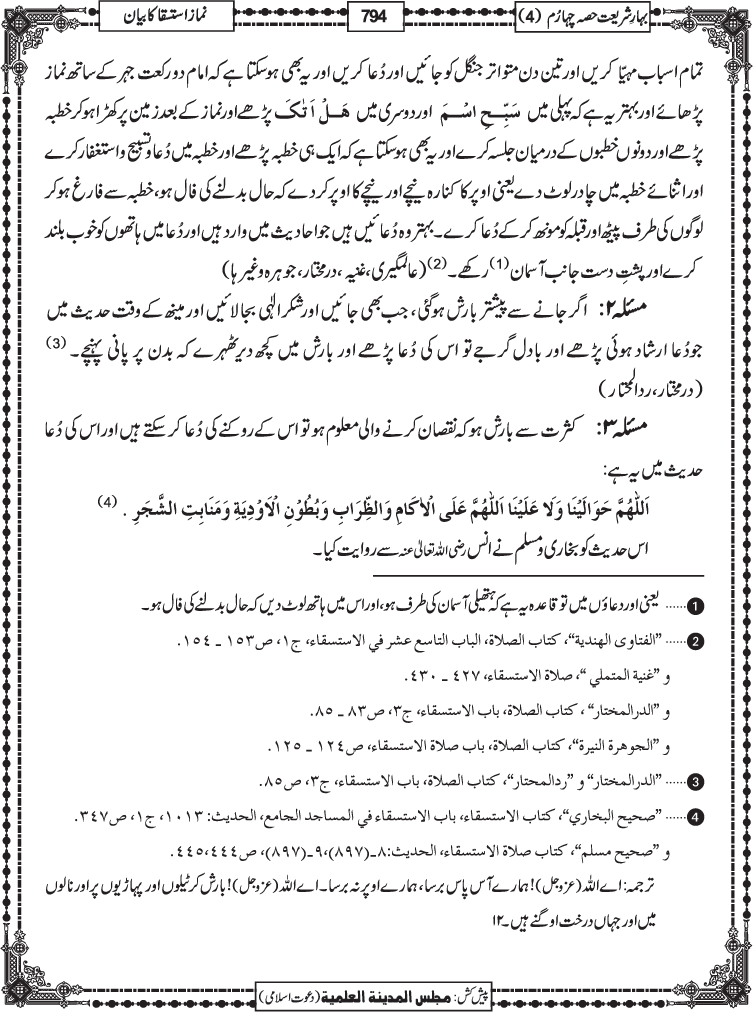 بہار شریعت حصہ چہارم (4)
794
نمازِ استسقا کا بیان
تمام اسباب مہیّا کریں اور تین دن متواتر جنگل کو جائیں اور دُعا کریں اور یہ بھی ہوسکتا ہے کہ امام دو رکعت جہر کے ساتھ نماز
پڑھائے اور بہتر یہ ہے کہ پہلی میں سَبِّحِ اسْمَ اور دوسری میں هَلْ اَتٰىكَ پڑھے اور نماز کے بعد زمین پر کھڑا ہو کر خطبہ
پڑھے اور دونوں خطبوں کے درمیان جلسہ کرے اور یہ بھی ہوسکتا ہے کہ ایک ہی خطبہ پڑھے اور خطبہ میں دُعا و تسبیح و استغفار کرے
اور اثنائے خطبہ میں چادر لوٹ دے یعنی اوپر کا کنارہ نیچے اور نیچے کا اوپر کر دے کہ حال بدلنے کی فال ہو، خطبہ سے فارغ ہو کر
لوگوں کی طرف پیٹھ اور قبلہ کو مونھ کر کے دُعا کرے۔ بہتر وہ دُعائیں ہیں جو احادیث میں وارد ہیں اور دُعا میں ہاتھوں کو خوب بلند
کرے اور پشتِ دست جانب آسمان (1) رکھے۔ (2) (عالمگیری، غنیہ، درمختار، جوہرہ وغیرہا)
مسئلہ ۲: اگر جانے سے پیشتر بارش ہوگئی، جب بھی جائیں اور شکرِ الٰہی بجا لائیں اور مینھ کے وقت حدیث میں
جو دُعا ارشاد ہوئی پڑھے اور بادل گرجے تو اس کی دُعا پڑھے اور بارش میں کچھ دیر ٹھہرے کہ بدن پر پانی پہنچے۔ (3)
(درمختار، ردالمحتار)
مسئلہ ۳: کثرت سے بارش ہو کہ نقصان کرنے والی معلوم ہو تو اس کے روکنے کی دُعا کر سکتے ہیں اور اس کی دُعا
حدیث میں یہ ہے:
اَللّٰهُمَّ حَوَالَيْنَا وَلَا عَلَيْنَا اَللّٰهُمَّ عَلَى الْاٰكَامِ وَالظِّرَابِ وَبُطُوْنِ الْاَوْدِيَةِ وَمَنَابِتِ الشَّجَرِ . (4)
اس حدیث کو بخاری و مسلم نے انس رضی اللہ تعالیٰ عنہ سے روایت کیا۔
1 ...... یعنی اور دعاؤں میں تو قاعدہ یہ ہے کہ ہتھیلی آسمان کی طرف ہو، اور اس میں ہاتھ لوٹ دیں کہ حال بدلنے کی فال ہو۔
2 ...... ”الفتاوى الهندية“، كتاب الصلاة، الباب التاسع عشر في الاستسقاء، ج١، ص١٥٣ ـ ١٥٤.
و ”غنية المتملي“، صلاة الاستسقاء، ٤٢٧ ـ ٤٣٠.
و ”الدرالمختار“، كتاب الصلاة، باب الاستسقاء، ج٣، ص٨٣ ـ ٨٥.
و ”الجوهرة النيرة“، كتاب الصلاة، باب صلاة الاستسقاء، ص١٢٤ ـ ١٢٥.
3 ...... ”الدرالمختار“ و ”ردالمحتار“، كتاب الصلاة، باب الاستسقاء، ج٣، ص٨٥.
4 ...... ”صحيح البخاري“، كتاب الاستسقاء، باب الاستسقاء في المساجد الجامع، الحديث: ١٠١٣، ج١، ص٣٤٧.
و ”صحيح مسلم“، كتاب صلاة الاستسقاء، الحديث: ٨ـ(٨٩٧)، ٩ـ(٨٩٧)، ص٤٤٤، ٤٤٥.
ترجمہ: اے اللہ (عزوجل)! ہمارے آس پاس برسا، ہمارے اوپر نہ برسا۔ اے اللہ (عزوجل)! بارش کر ٹیلوں اور پہاڑیوں پر اور نالوں
میں اور جہاں درخت اوگتے ہیں۔ ۱۲
پیش کش: مجلس المدینۃ العلمیۃ (دعوت اسلامی)